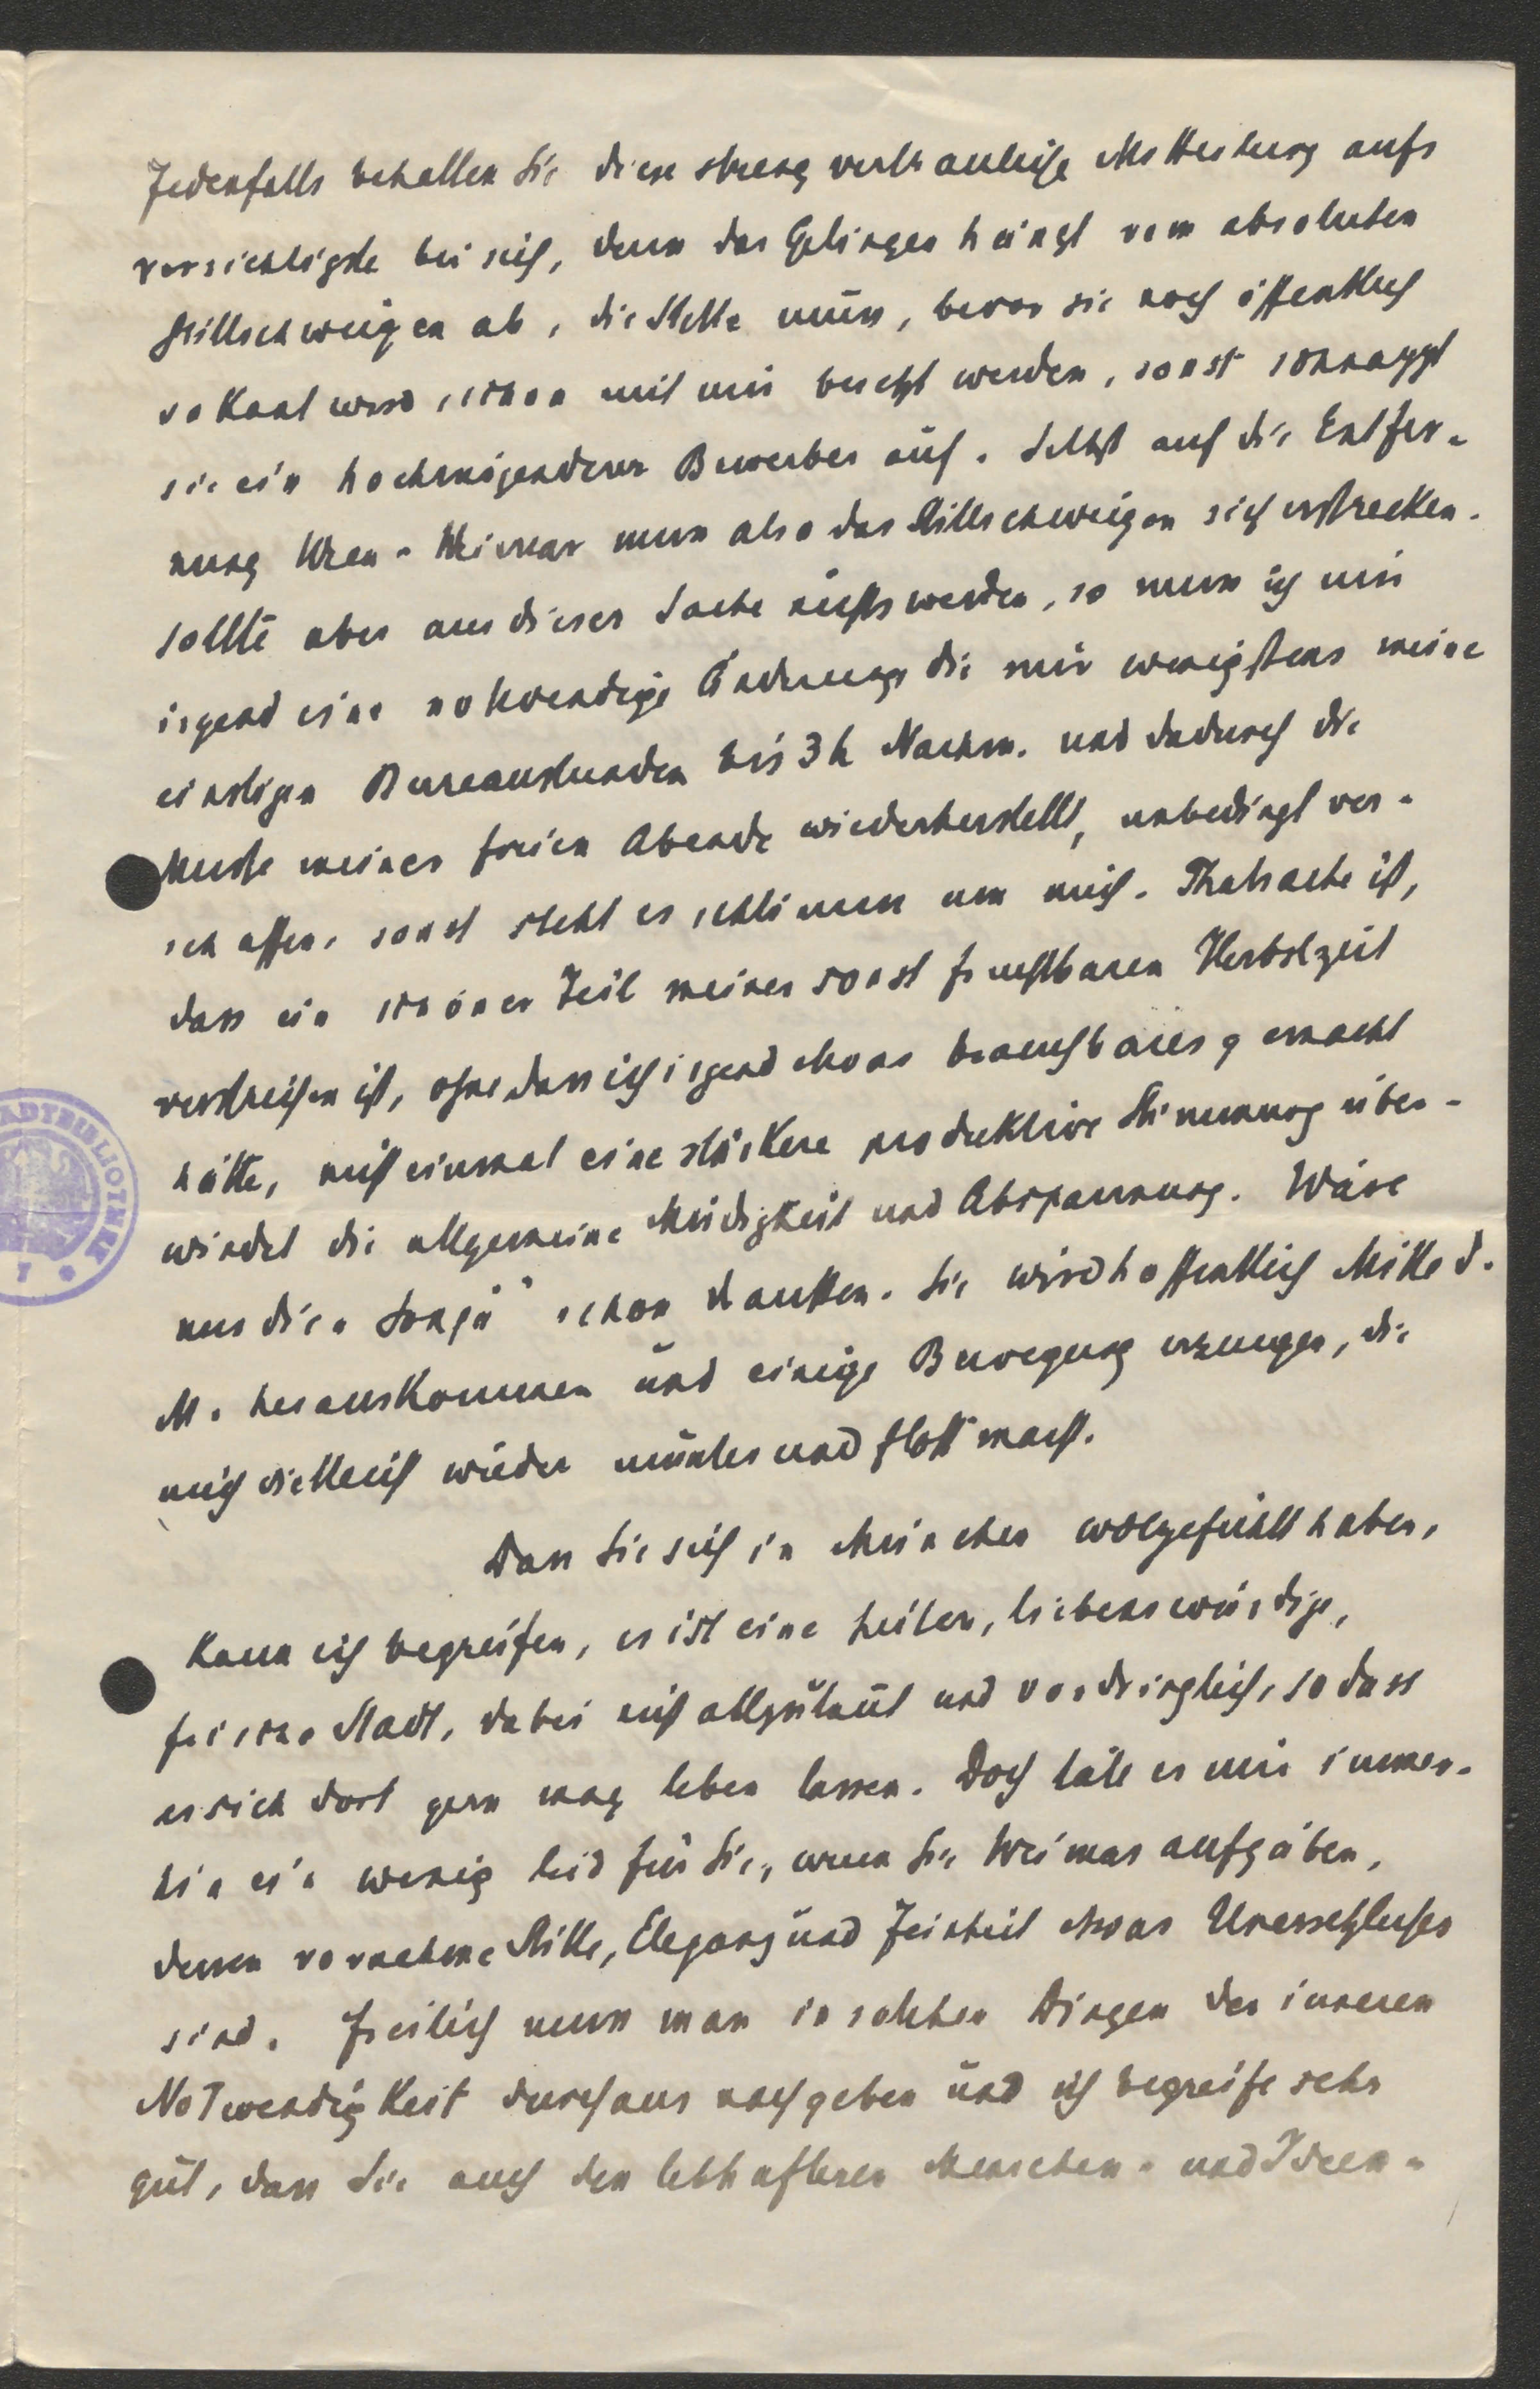 Jedenfalls behalten Sie diese streng vertrauliche Mitteilung aufs
vorsichtigste bei sich, denn das Gelingen hängt vom absoluten
Stillschweigen ab, die Stelle muss, bevor sie noch öffentlich
vakant wird, schon mit mir besetzt werden, sonst schnappt
sie ein hochmögenderer Bewerber auf. Selbst auf die Entfer-
nung Wien-Weimar muss also das Stillschweigen sich erstrecken.
Sollte aber aus dieser Sache nichts werden, so muss ich mir
irgend eine notwendige Änderung, die mir wenigstens meine
einstigen Bureaustunden bis 3h Nachm. und dadurch die
Musse meiner freien Abende wiederherstellt, unbedingt ver-
schaffen, sonst steht es schlimm um mich. Thatsache ist,
dass ein schöner Teil meiner sonst fruchtbaren Herbstzeit
verstrichen ist, ohne dass ich irgend etwas brauchbares gemacht
hätte, nicht einmal eine stärkere produktive Stimmung über-
windet die allgemeine Müdigkeit und Abspannung. Wäre
nur die „Sonja" schon draußen. Sie wird hoffentlich Mitte d.
M. herauskommen und einige Bewegung erzeugen, die
mich vielleicht wieder munter und flott macht.
Dass Sie sich in München wolgefühlt haben,
kann ich begreifen, es ist eine heitere, liebenswürdige,
frische Stadt, dabei nicht allzulaut und vordringlich, sodass
es sich dort gern mag leben lassen. Doch täte es mir immer-
hin ein wenig leid für Sie, wenn Sie Weimar aufgäben,
dessen vornehme Stille, Eleganz und Feinheit etwas Unersetzliches
sind. Freilich muss man in solchen Dingen der inneren
Notwendigkeit durchaus nachgeben und ich begreife sehr
gut, dass Sie auch den lebhafteren Menschen- und Ideen-
STADTBIBLIOTHEK